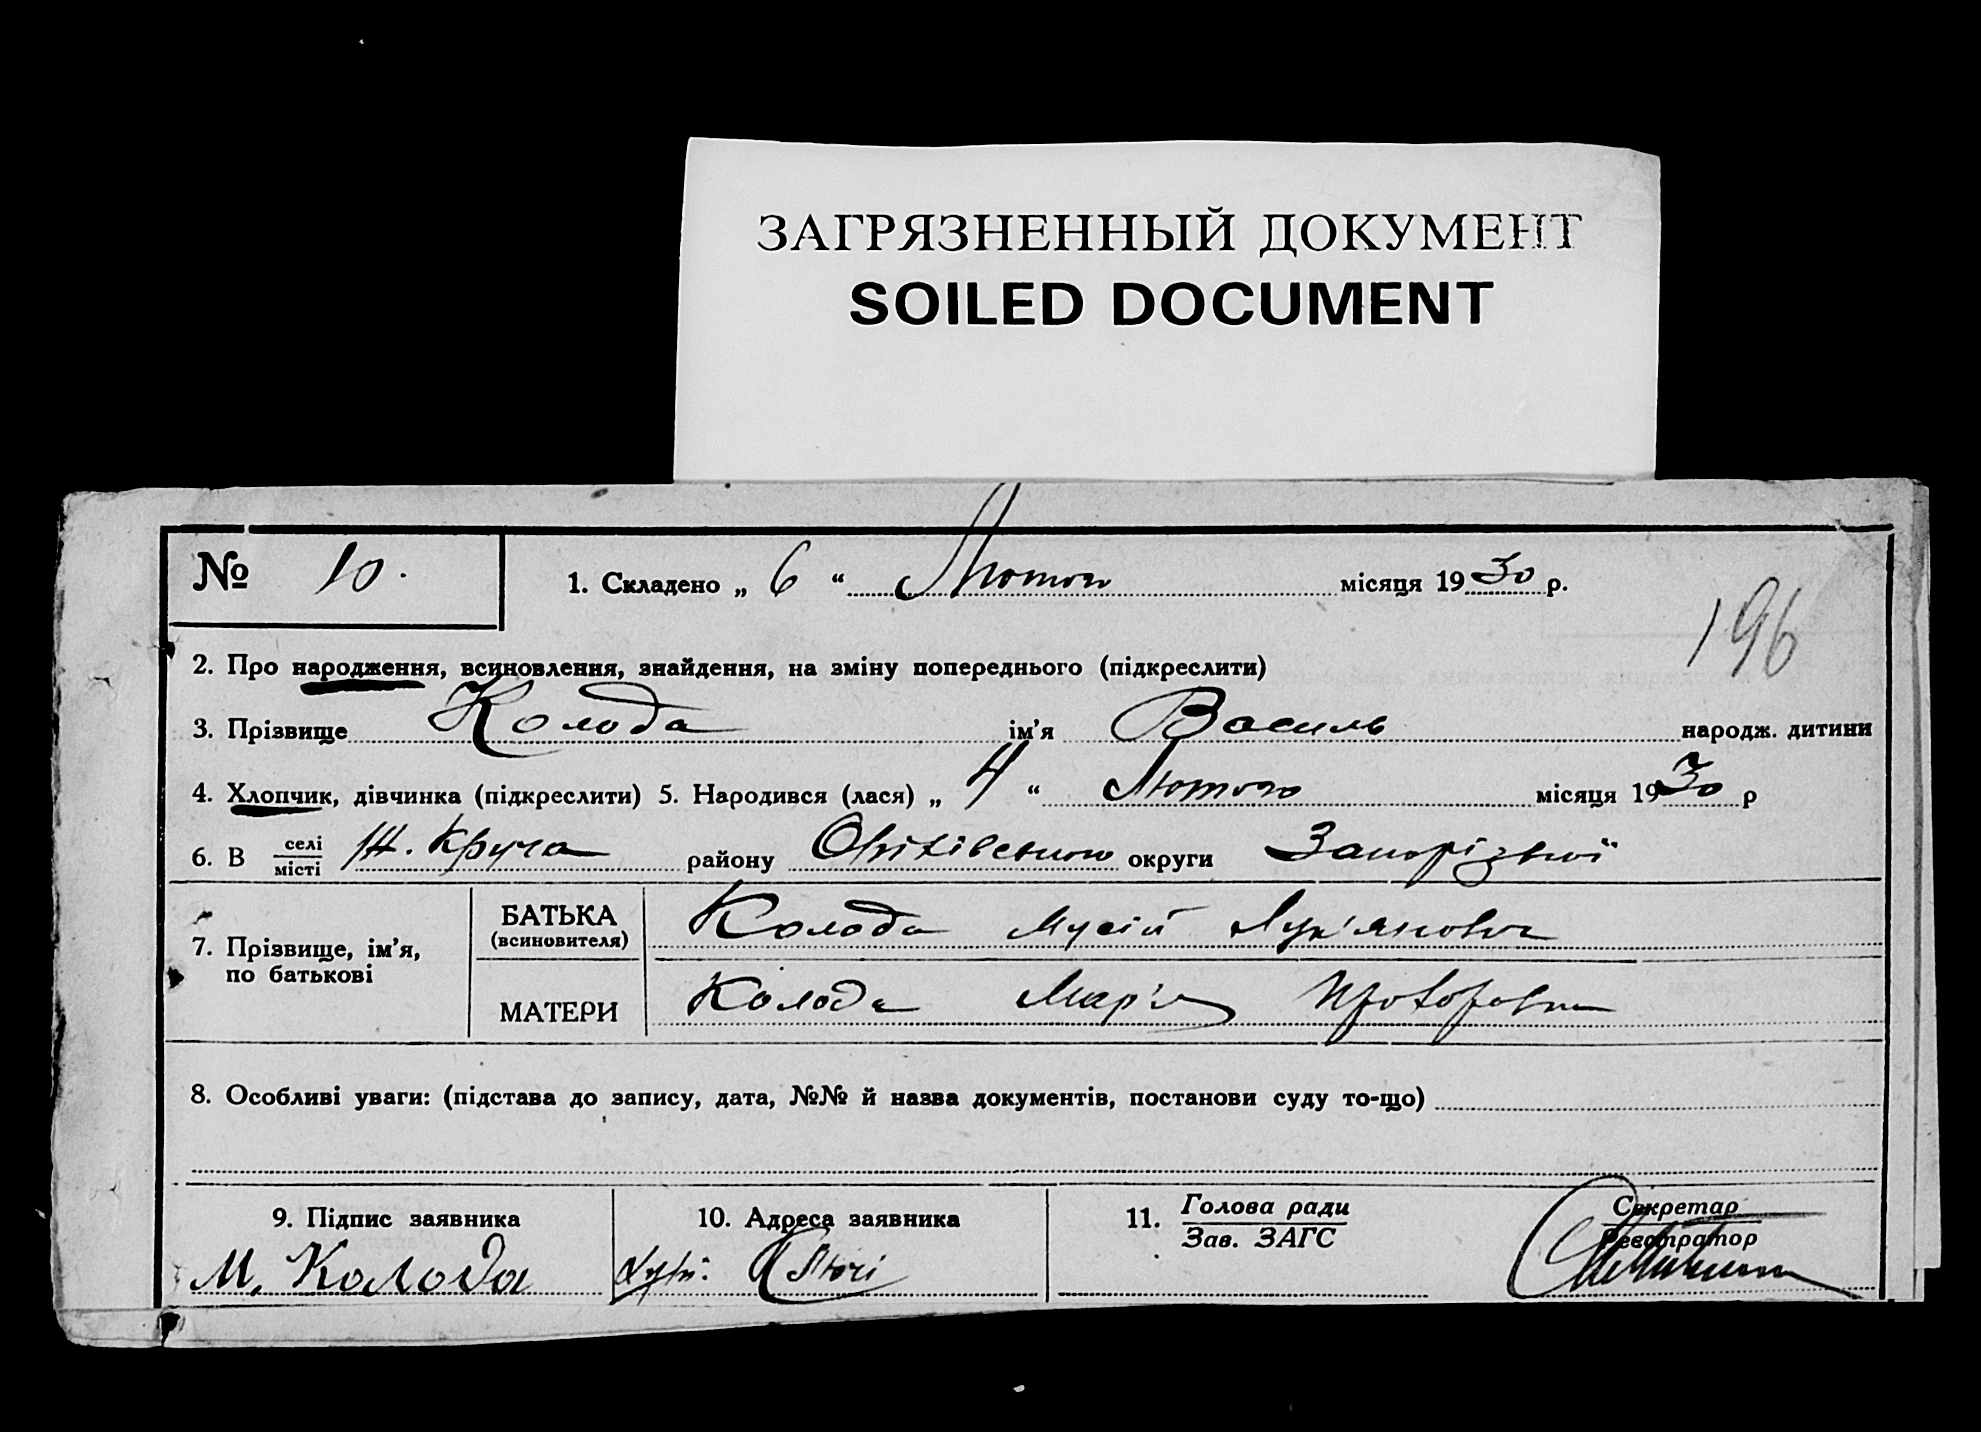 ЗАГРЯЗНЕННЫЙ ДОКУМЕНТ
SOILED DOCUMENT
№ 10. 1. Складено „ 6 “ Лютого місяця 1930 р.
196
2. Про народження, всиновлення, знайдення, на зміну попереднього (підкреслити)
3. Прізвище Колода ім'я Василь народж. дитини
4. Хлопчик, дівчинка (підкреслити) 5. Народився (лася) „ 4 “ Лютого місяця 1930 р
6. В селі місті Круча району Оріхівського округи Запорізької
7. Прізвище, ім'я, по батькові
БАТЬКА (всиновителя) Колода Мусій Лук'янович
МАТЕРИ Колода Мар'я Прохоровна
8. Особливі уваги: (підстава до запису, дата, №№ й назва документів, постанови суду то-що)
9. Підпис заявника 10. Адреса заявника 11. Голова ради Зав. ЗАГС Секретар Реєстратор
М. Колода